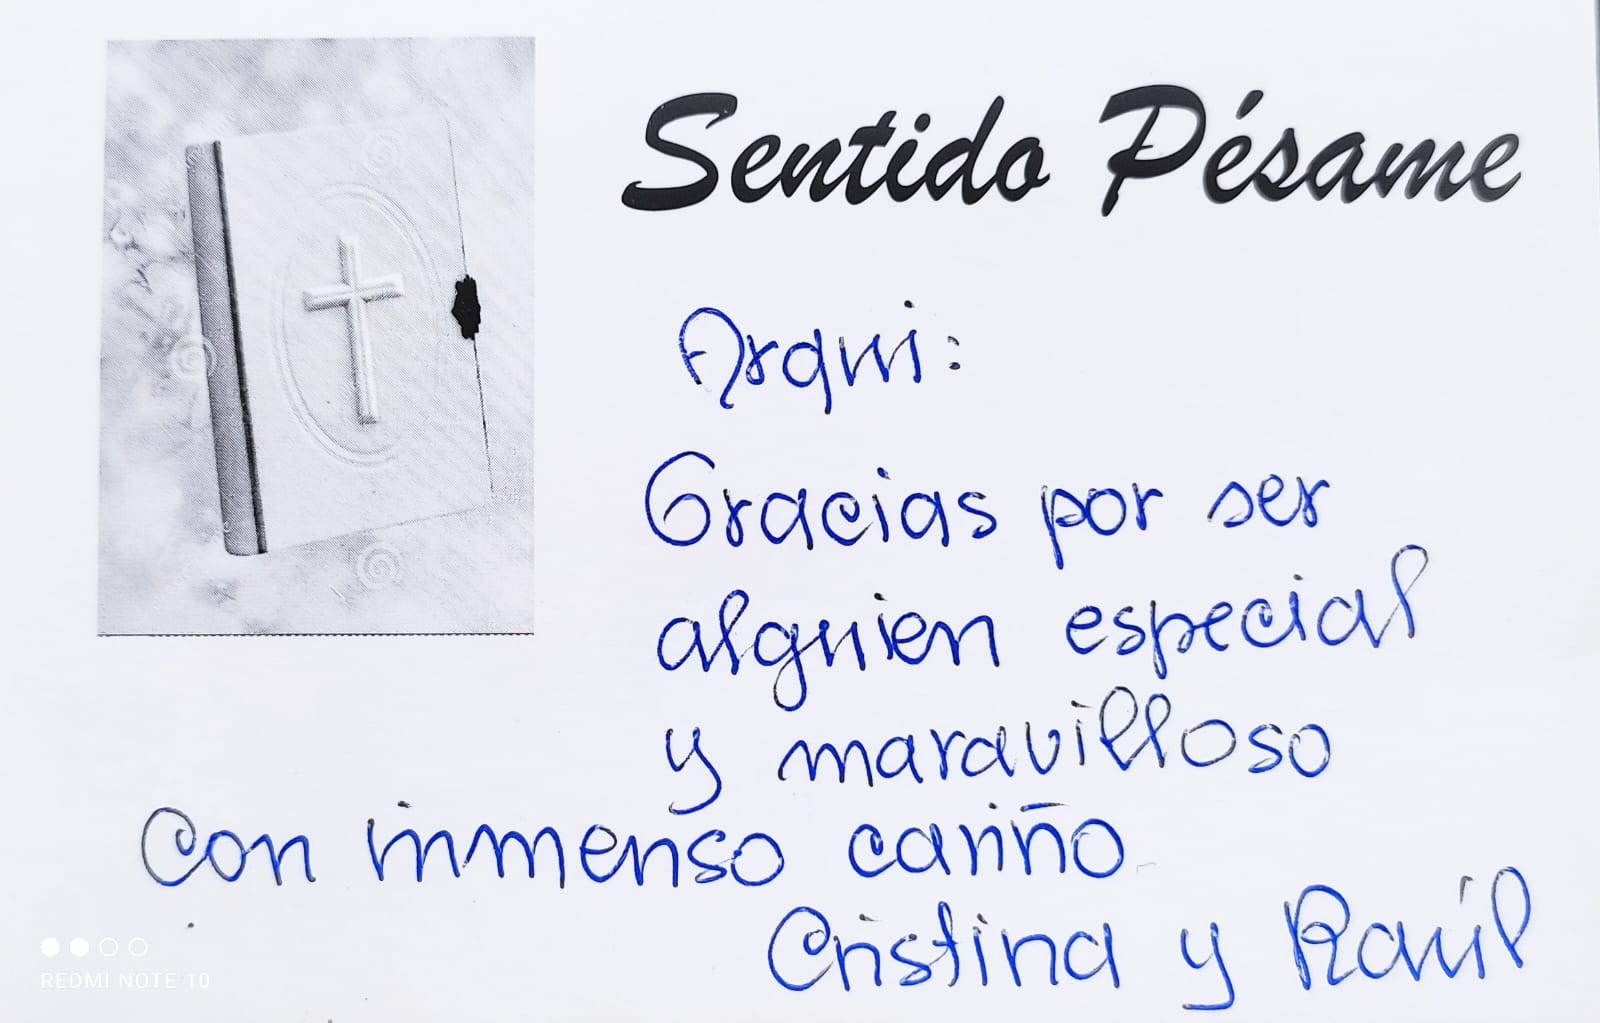 Sentido Pésame
Arqui:
Gracias por ser
alguien especial
y maravilloso
con inmenso cariño
Cristina y Raúl
REDMI NOTE 10